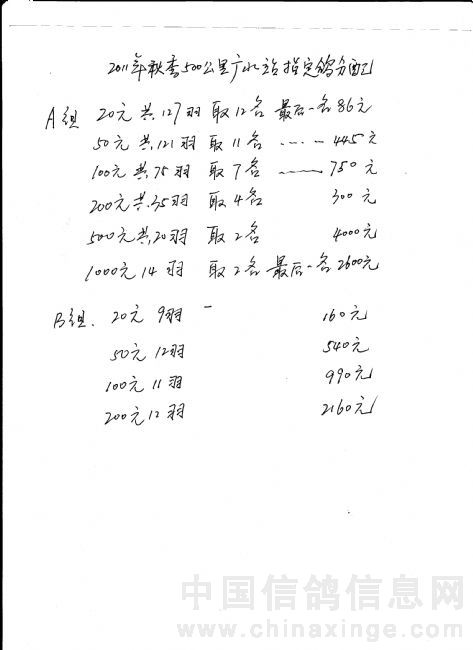 2011年秋季500公里广水站指定鸽分配
A组 20元 共127羽 取12名 最后一名86元
50元 共121羽 取11名 ...—... 445元
100元 共75羽 取7名 ——— 750元
200元 共35羽 取4名 300元
500元 共20羽 取2名 4000元
1000元 14羽 取2名 最后一名2600元
B组. 20元 9羽 — 160元
50元 12羽 540元
100元 11羽 990元
200元 12羽 2160元
中国信鸽信息网
www.chinaxinge.com